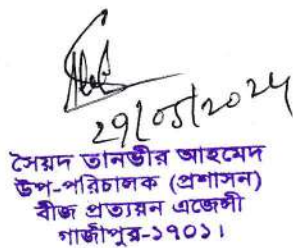 29/05/2024
সৈয়দ তানভীর আহমেদ
উপ-পরিচালক (প্রশাসন)
বীজ প্রত্যয়ন এজেন্সী
গাজীপুর-১৭০১।